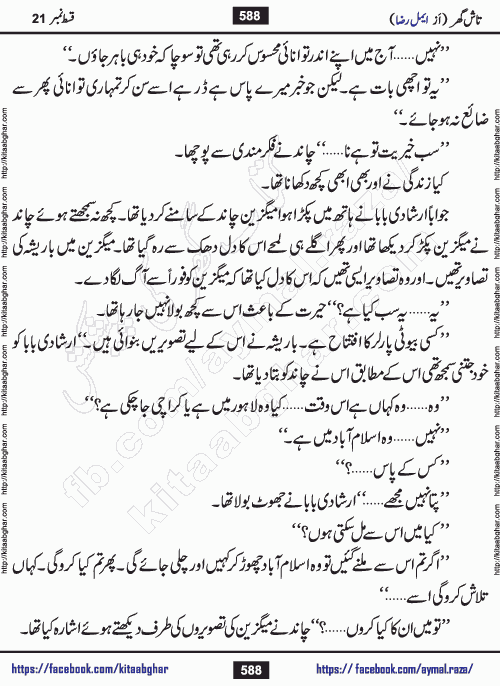 تاش گھر (از ایمل رضا) 588 قسط نمبر 21
”نہیں……آج میں اپنے اندر توانائی محسوس کر رہی تھی تو سوچا کہ خود ہی باہر جاؤں۔“
”یہ تو اچھی بات ہے۔ لیکن جو خبر میرے پاس ہے ڈر ہے اسے سن کر تمہاری توانائی پھر سے
ضائع نہ ہو جائے۔“
”سب خیریت تو ہے نا……“ چاند نے فکر مندی سے پوچھا۔
کیا زندگی نے اور بھی ابھی کچھ دکھانا تھا۔
جواباً ارشادی بابا نے ہاتھ میں پکڑا ہوا میگزین چاند کے سامنے کر دیا تھا۔ کچھ نہ سمجھتے ہوئے چاند
نے میگزین پکڑ کر دیکھا تھا اور پھر اگلے ہی لمحے اس کا دل دھک سے رہ گیا تھا۔ میگزین میں باریشہ کی
تصاویر تھیں۔ اور وہ تصاویر ایسی تھیں کہ اس کا دل کیا تھا کہ میگزین کو فوراً سے آگ لگا دے۔
”یہ……یہ سب کیا ہے؟“ حیرت کے باعث اس سے کچھ بولا نہیں جا رہا تھا۔
”کسی بیوٹی پارلر کا افتتاح ہے۔ باریشہ نے اس کے لیے تصویریں بنوائی ہیں۔“ ارشادی بابا کو
خود جتنی سمجھ تھی اس کے مطابق اس نے چاند کو بتا دیا تھا۔
”وہ……وہ کہاں ہے اس وقت……کیا وہ لاہور میں ہے یا کراچی جا چکی ہے؟“
”نہیں……وہ اسلام آباد میں ہے۔“
”کس کے پاس……؟“
”پتا نہیں مجھے……“ ارشادی بابا نے جھوٹ بولا تھا۔
”کیا میں اس سے مل سکتی ہوں؟“
”اگر تم اس سے ملنے گئیں تو وہ اسلام آباد چھوڑ کر کہیں اور چلی جائے گی۔ پھر تم کیا کرو گی۔ کہاں
تلاش کرو گی اسے……“
”تو میں ان کا کیا کروں……؟“ چاند نے میگزین کی تصویروں کی طرف دیکھتے ہوئے اشارہ کیا تھا۔
https://facebook.com/kitaabghar 588 https:// facebook.com/aymal.raza/
http://kitaabghar.com http://kitaabghar.com http://kitaabghar.com http://kitaabghar.com http://kitaabghar.com
http://kitaabghar.com http://kitaabghar.com http://kitaabghar.com http://kitaabghar.com http://kitaabghar.com
fb.com/aymal.raza
kitaabghar.com